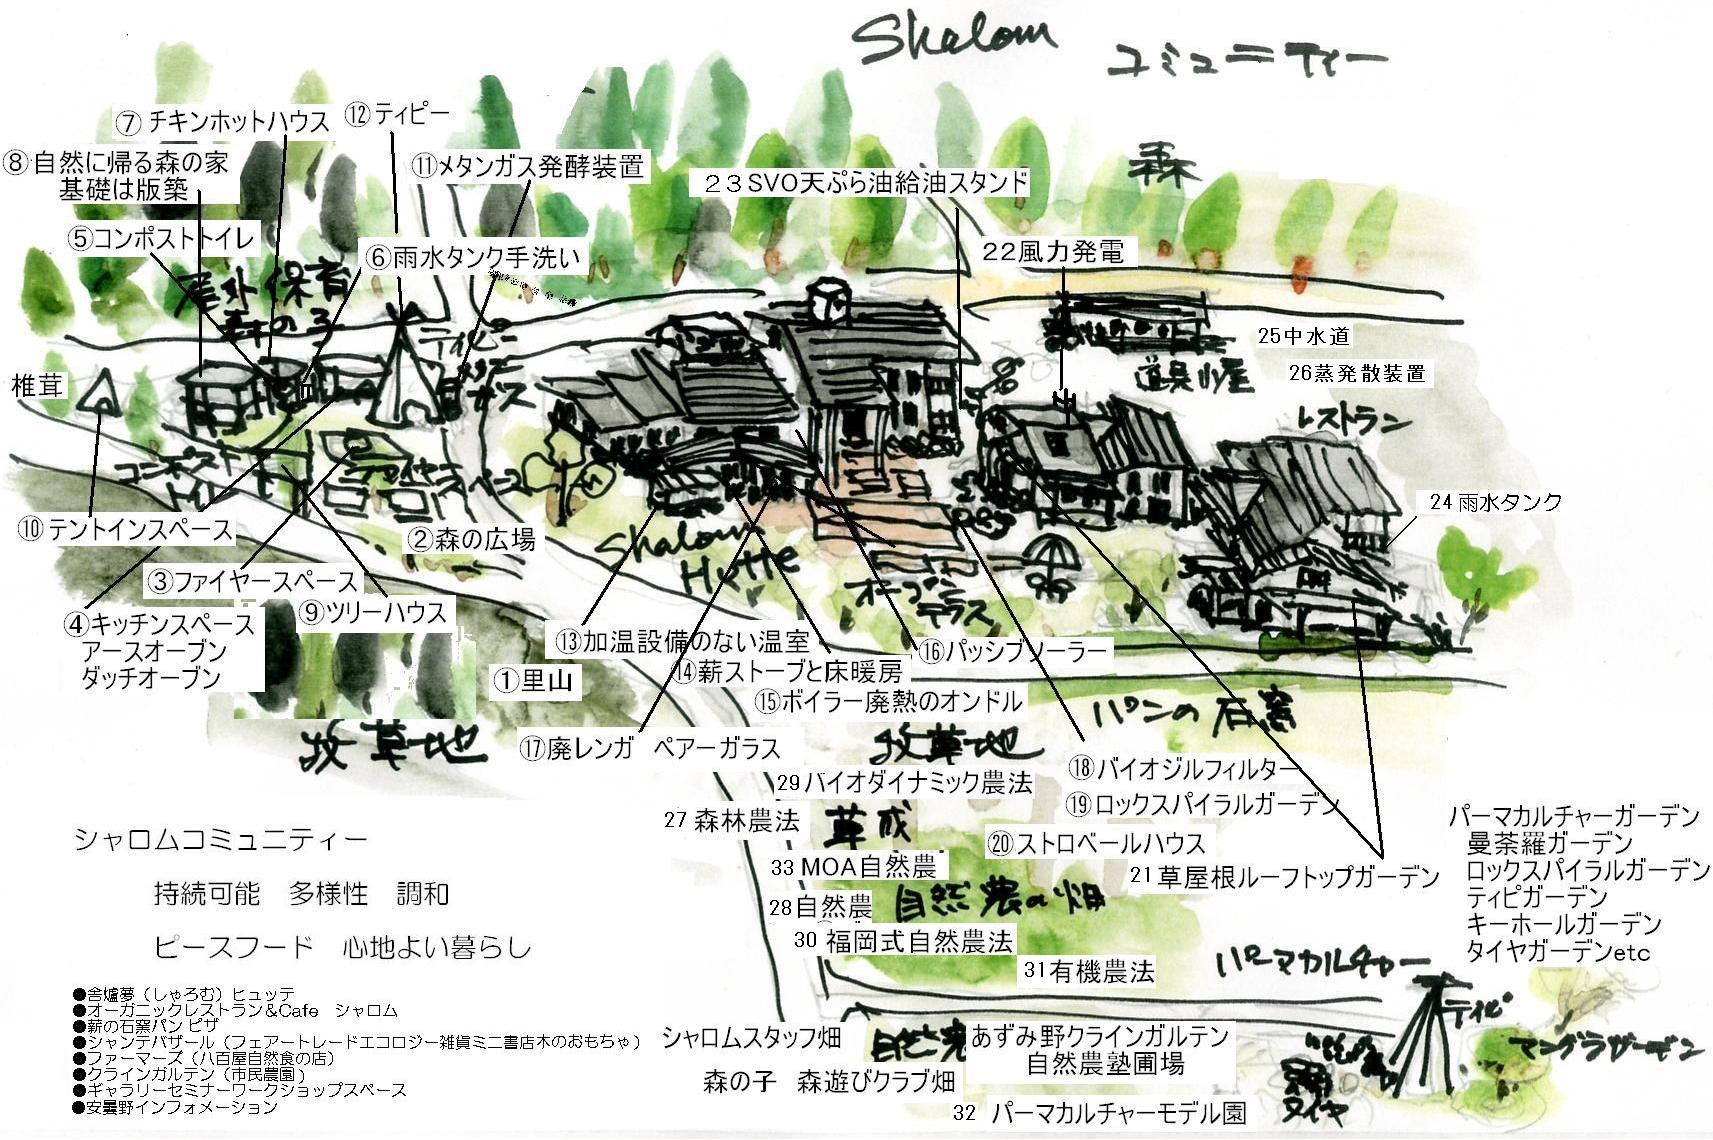 Shalom
コミュニティー
⑦ チキンホットハウス
⑫ティピー
⑧自然に帰る森の家
基礎は版築
⑪メタンガス発酵装置
森
23SVO天ぷら油給油スタンド
⑤コンポストトイレ
⑥雨水タンク手洗い
22風力発電
屋外保育
森の子
ティピー
25中水道
道具小屋
26蒸発散装置
椎茸
レストラン
コンポスト
トイレ
ファイヤースペース
⑩テントインスペース
②森の広場
24雨水タンク
Shalom
Hütte
オープン
テラス
③ファイヤースペース
⑨ツリーハウス
④キッチンスペース
アースオーブン
ダッチオーブン
⑬加温設備のない温室
⑯パッシブソーラー
①里山
⑭薪ストーブと床暖房
⑮ボイラー廃熱のオンドル
パンの石窯
牧草地
⑰廃レンガ ペアーガラス
牧草地
⑱バイオジルフィルター
29バイオダイナミック農法
⑲ロックスパイラルガーデン
27 森林農法
⑳ストロベールハウス
33 MOA自然農
21草屋根ルーフトップガーデン
28自然農
自然農の畑
30 福岡式自然農法
31有機農法
パーマカルチャーガーデン
曼荼羅ガーデン
ロックスパイラルガーデン
ティピガーデン
キーホールガーデン
タイヤガーデンetc
シャロムコミュニティー
持続可能 多様性 調和
ピースフード 心地よい暮らし
●舎爐夢（しゃろむ）ヒュッテ
●オーガニックレストラン＆Cafe シャロム
●薪の石窯パン ピザ
●シャンテバザール（フェアートレードエコロジー雑貨ミニ書店木のおもちゃ）
●ファーマーズ（八百屋自然食の店）
●クラインガルテン（市民農園）
●ギャラリーセミナーワークショップスペース
●安曇野インフォメーション
パーマカルチャー
ティピ
マンダラガーデン
タイヤ
シャロムスタッフ畑
あずみ野クラインガルテン
自然農塾圃場
森の子 森遊びクラブ畑
32 パーマカルチャーモデル園